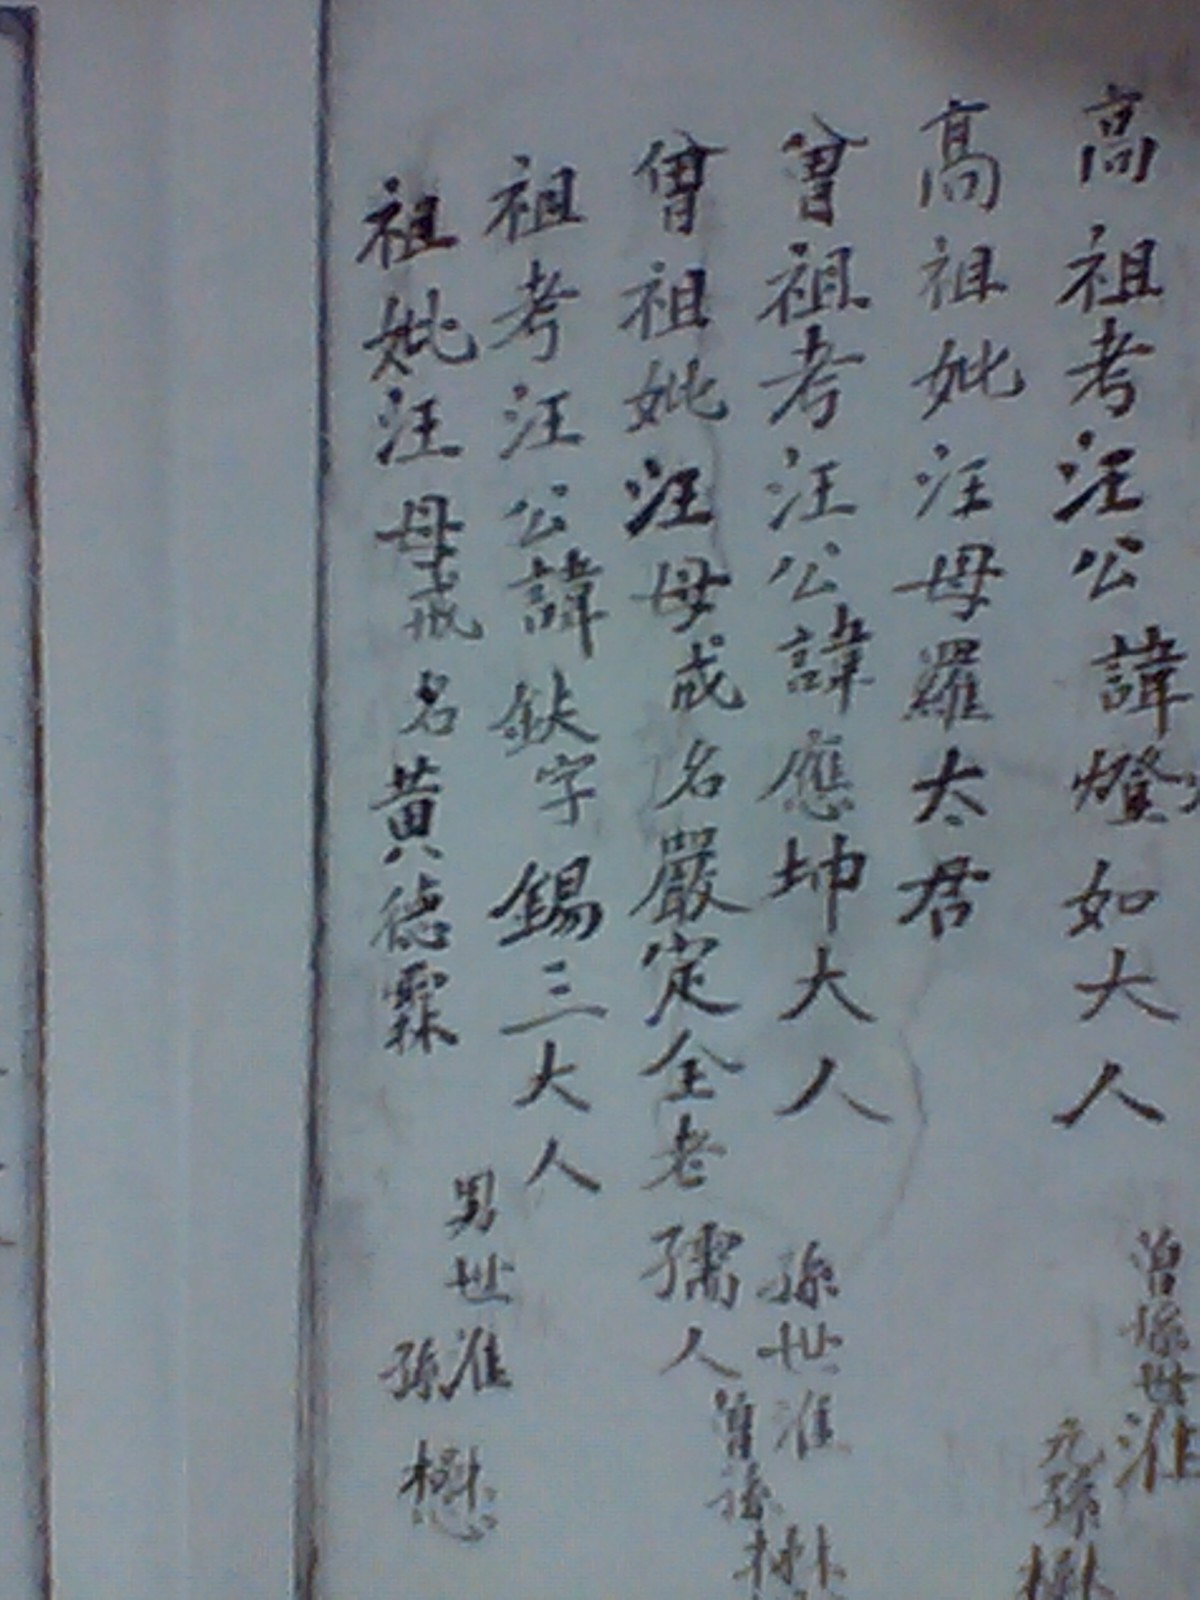 高祖考汪公諱燈如大人
曾孫世淮
元孫懋
高祖妣汪母羅太君
曾祖考汪公諱應坤大人
孫世淮
曾孫懋
曾祖妣汪母戒名嚴定全老孺人
祖考汪公諱鈇字錫三大人
男世淮
孫懋
祖妣汪母戒名黄德霖